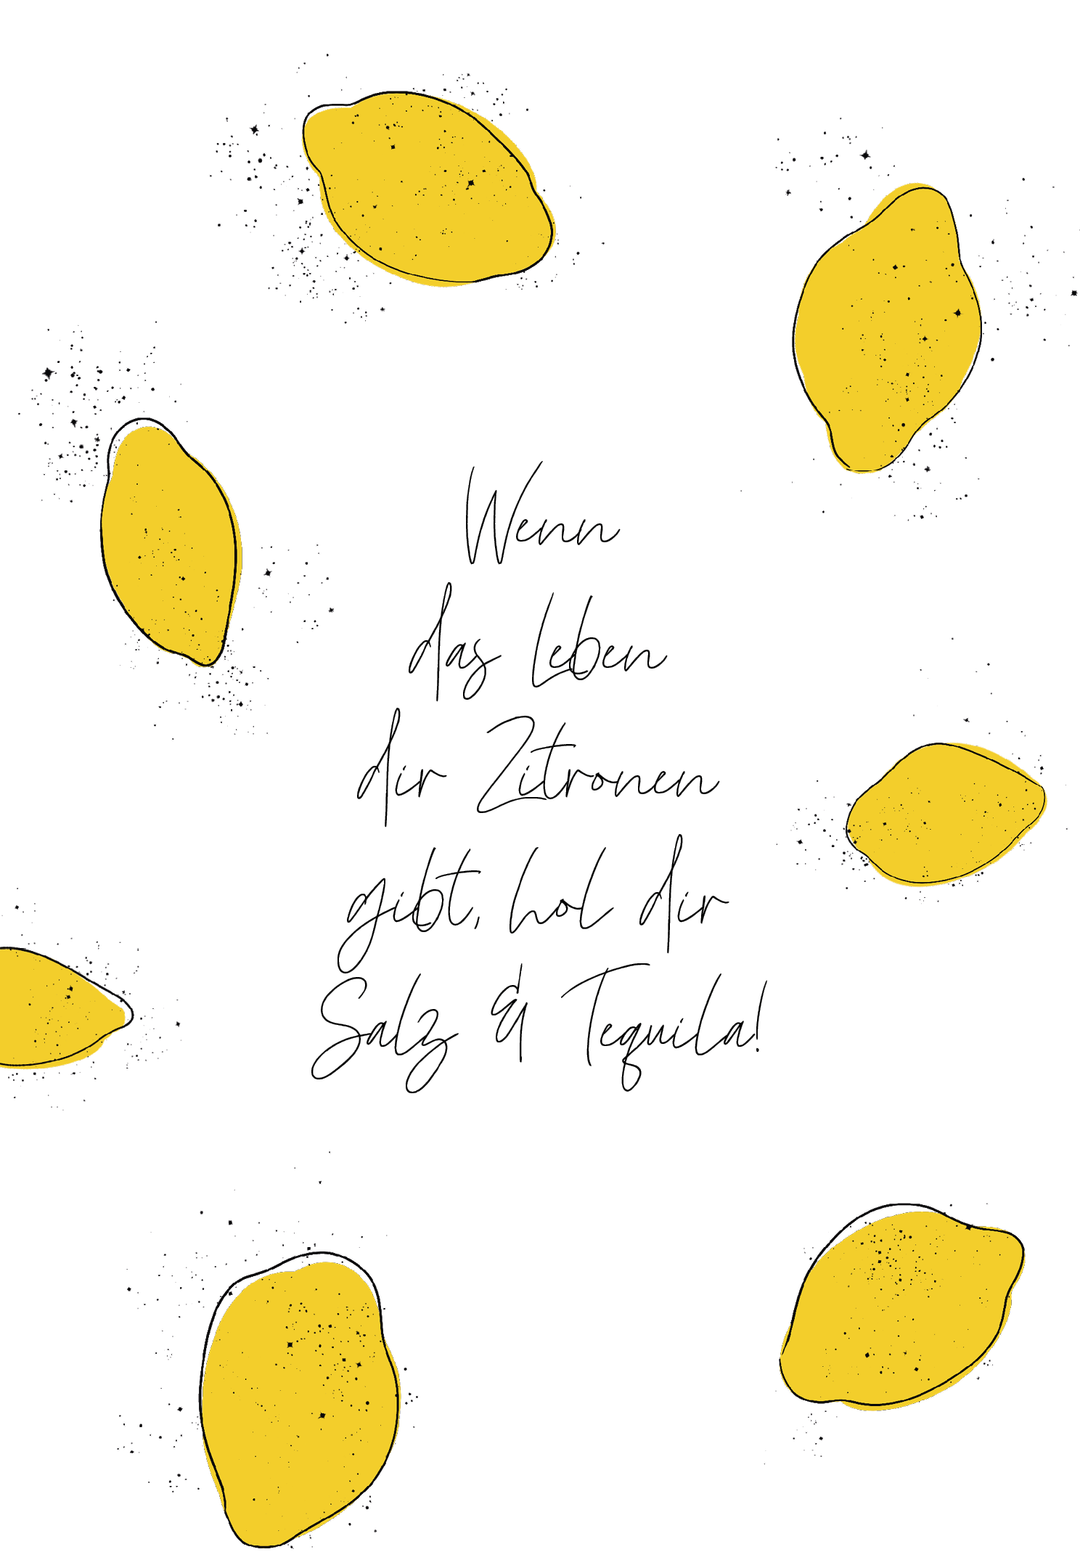 Wenn
das Leben
dir Zitronen
gibt, hol dir
Salz & Tequila!